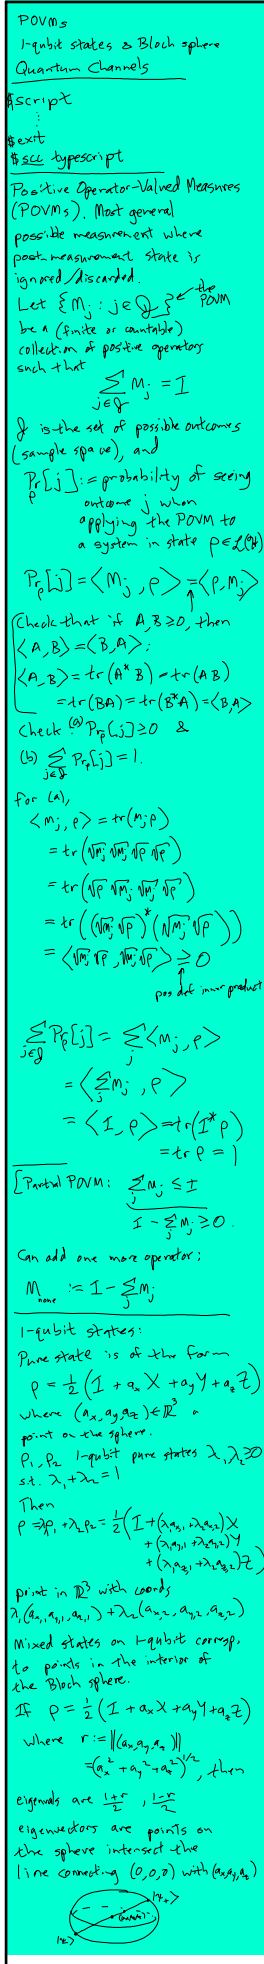 POVMs
1-qubit states & Bloch sphere
Quantum Channels
$script
⋮
$exit
$ scc typescript
Positive Operator-Valued Measures
(POVMs). Most general
possible measurement where
post measurement state is
ignored/discarded.
Let {M_j : j∈J} ← the POVM
be a (finite or countable)
collection of positive operators
such that
∑_{j∈J} M_j = I
J is the set of possible outcomes
(sample space), and
Pr_ρ[j] := probability of seeing
outcome j when
applying the POVM to
a system in state ρ∈L(H)
Pr_ρ[j] = <M_j, ρ> = <ρ, M_j>
Check that if A,B≥0, then
<A,B> = <B,A>:
<A,B> = tr(A*B) = tr(AB)
= tr(BA) = tr(B*A) = <B,A>
Check (a) Pr_ρ[j]≥0 &
(b) ∑_{j∈J} Pr_ρ[j] = 1.
For (a),
<M_j, ρ> = tr(M_j ρ)
= tr(√M_j √M_j √ρ √ρ)
= tr(√ρ √M_j √M_j √ρ)
= tr((√M_j √ρ)* (√M_j √ρ))
= <√M_j √ρ, √M_j √ρ> ≥ 0
pos def inner product
∑_{j∈J} Pr_ρ[j] = ∑_j <M_j, ρ>
= <∑_j M_j, ρ>
= <I, ρ> = tr(I* ρ)
= tr ρ = 1
[Partial POVM: ∑_j M_j ≤ I
I - ∑_j M_j ≥ 0.
Can add one more operator:
M_none := I - ∑_j M_j
1-qubit states:
Pure state is of the form
ρ = 1/2 (I + a_x X + a_y Y + a_z Z)
where (a_x, a_y, a_z) ∈ ℝ³ a
point on the sphere.
ρ_1, ρ_2 1-qubit pure states λ_1, λ_2 ≥ 0
s.t. λ_1 + λ_2 = 1
Then
ρ := λ_1 ρ_1 + λ_2 ρ_2 = 1/2 (I + (λ_1 a_{x,1} + λ_2 a_{x,2})X
+ (λ_1 a_{y,1} + λ_2 a_{y,2})Y
+ (λ_1 a_{z,1} + λ_2 a_{z,2})Z)
point in ℝ³ with coords
λ_1(a_{x,1}, a_{y,1}, a_{z,1}) + λ_2(a_{x,2}, a_{y,2}, a_{z,2})
Mixed states on 1-qubit corresp.
to points in the interior of
the Bloch sphere.
If ρ = 1/2 (I + a_x X + a_y Y + a_z Z)
where r := ||(a_x, a_y, a_z)||
= (a_x² + a_y² + a_z²)^{1/2}, then
eigenvals are (1+r)/2, (1-r)/2
eigenvectors are points on
the sphere intersect the
line connecting (0,0,0) with (a_x, a_y, a_z)